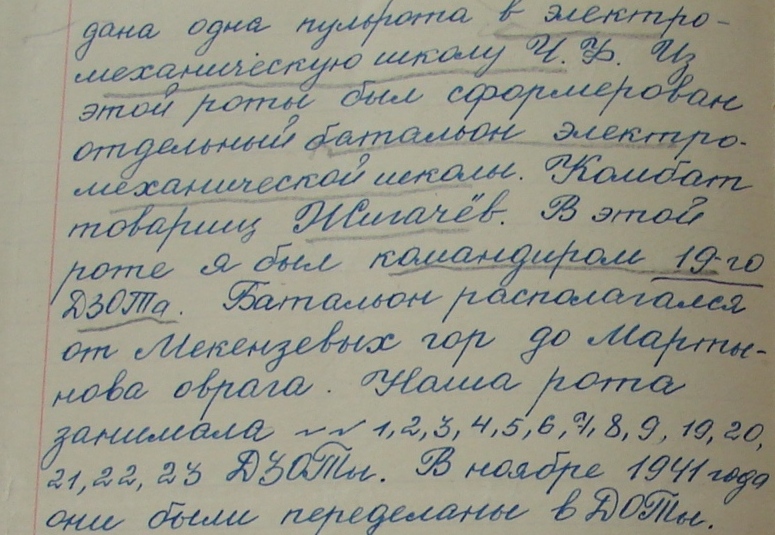 дана одна пульрота в электро-
механическую школу Ч.Ф. Из
этой роты был сформерован
отдельный батальон электро-
механической школы. Комбат
товарищ Жигачёв. В этой
роте я был командиром 19-го
ДЗОТа. Батальон располагался
от Мекензевых гор до Марты-
нова оврага. Наша рота
занимала ~~ 1,2,3,4,5,6,7,8,9,19,20,
21,22,23 ДЗОТы. В ноябре 1941 года
они были переделаны в ДОТы.